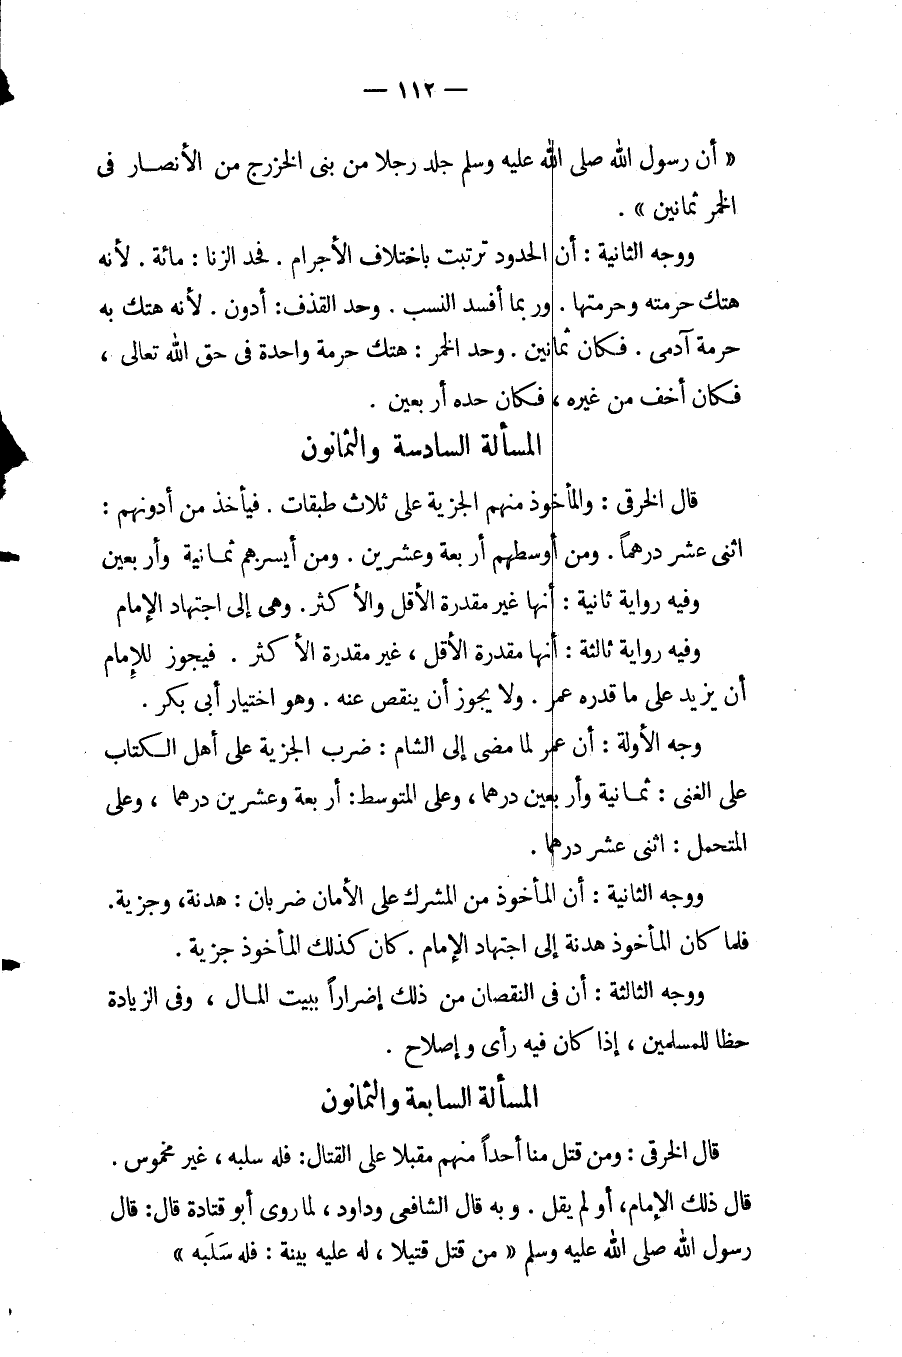 — ١١٢ —
« أن رسول الله صلى الله عليه وسلم جلد رجلا من بنى الخزرج من الأنصار فى
الخمر ثمانين » .
ووجه الثانية : أن الحدود ترتبت باختلاف الأجرام . فحد الزنا : مائة . لأنه
هتك حرمته وحرمتها . وربما أفسد النسب . وحد القذف: أدون . لأنه هتك به
حرمة آدمى . فكان ثمانين . وحد الخمر : هتك حرمة واحدة فى حق الله تعالى ،
فكان أخف من غيره ، فكان حده أربعين .
المسألة السادسة والثمانون
قال الخرقى : والمأخوذ منهم الجزية على ثلاث طبقات . فيأخذ من أدونهم :
اثنى عشر درهماً . ومن أوسطهم أربعة وعشرين . ومن أيسرهم ثمانية وأربعين
وفيه رواية ثانية : أنها غير مقدرة الأقل والأكثر. وهى إلى اجتهاد الإمام
وفيه رواية ثالثة : أنها مقدرة الأقل ، غير مقدرة الأكثر . فيجوز للإمام
أن يزيد على ما قدره عمر . ولا يجوز أن ينقص عنه . وهو اختيار أبى بكر .
وجه الأولة : أن عمر لما مضى إلى الشام : ضرب الجزية على أهل الكتاب
على الغنى : ثمانية وأربعين درهما، وعلى المتوسط: أربعة وعشرين درهما ، وعلى
المتحمل : اثنى عشر درهما .
ووجه الثانية : أن المأخوذ من المشرك على الأمان ضربان : هدنة، وجزية.
فلما كان المأخوذ هدنة إلى اجتهاد الإمام . كان كذلك المأخوذ جزية .
ووجه الثالثة : أن فى النقصان من ذلك إضراراً ببيت المال ، وفى الزيادة
حظا للمسلمين ، إذا كان فيه رأى وإصلاح .
المسألة السابعة والثمانون
قال الخرقى : ومن قتل منا أحداً منهم مقبلا على القتال: فله سلبه ، غير مخموس .
قال ذلك الإمام، أو لم يقل . وبه قال الشافعى وداود ، لما روى أبو قتادة قال: قال
رسول الله صلى الله عليه وسلم « من قتل قتيلا ، له عليه بينة : فله سَلَبه »